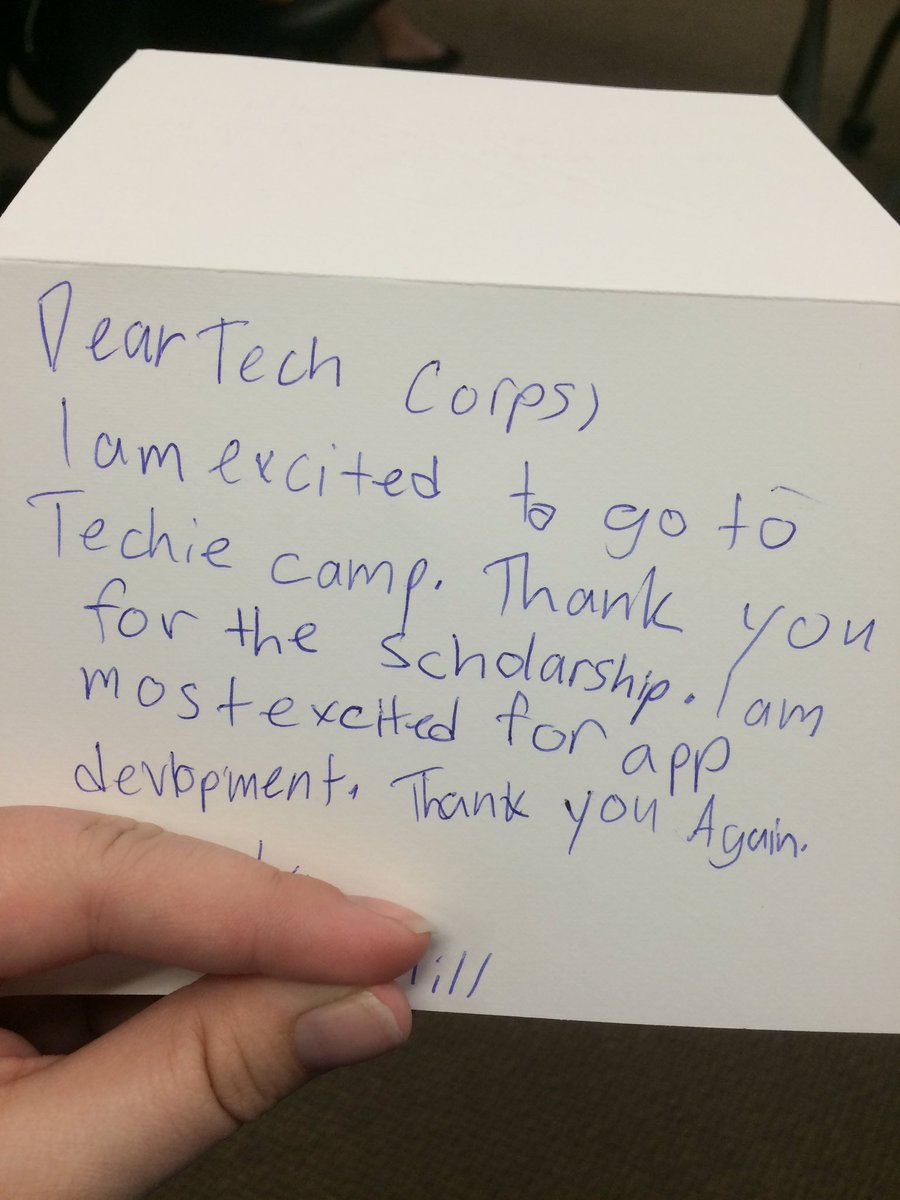 Dear Tech Corps,
I am excited to go to
Techie camp. Thank you
for the scholarship. I am
most excited for app
devlopment. Thank you Again.